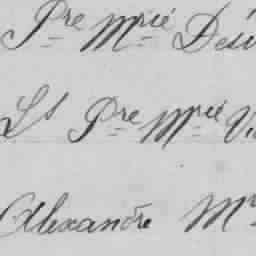 Pre Mrie Dési
Ls Pre Mrie Vi
Alexandre Mr